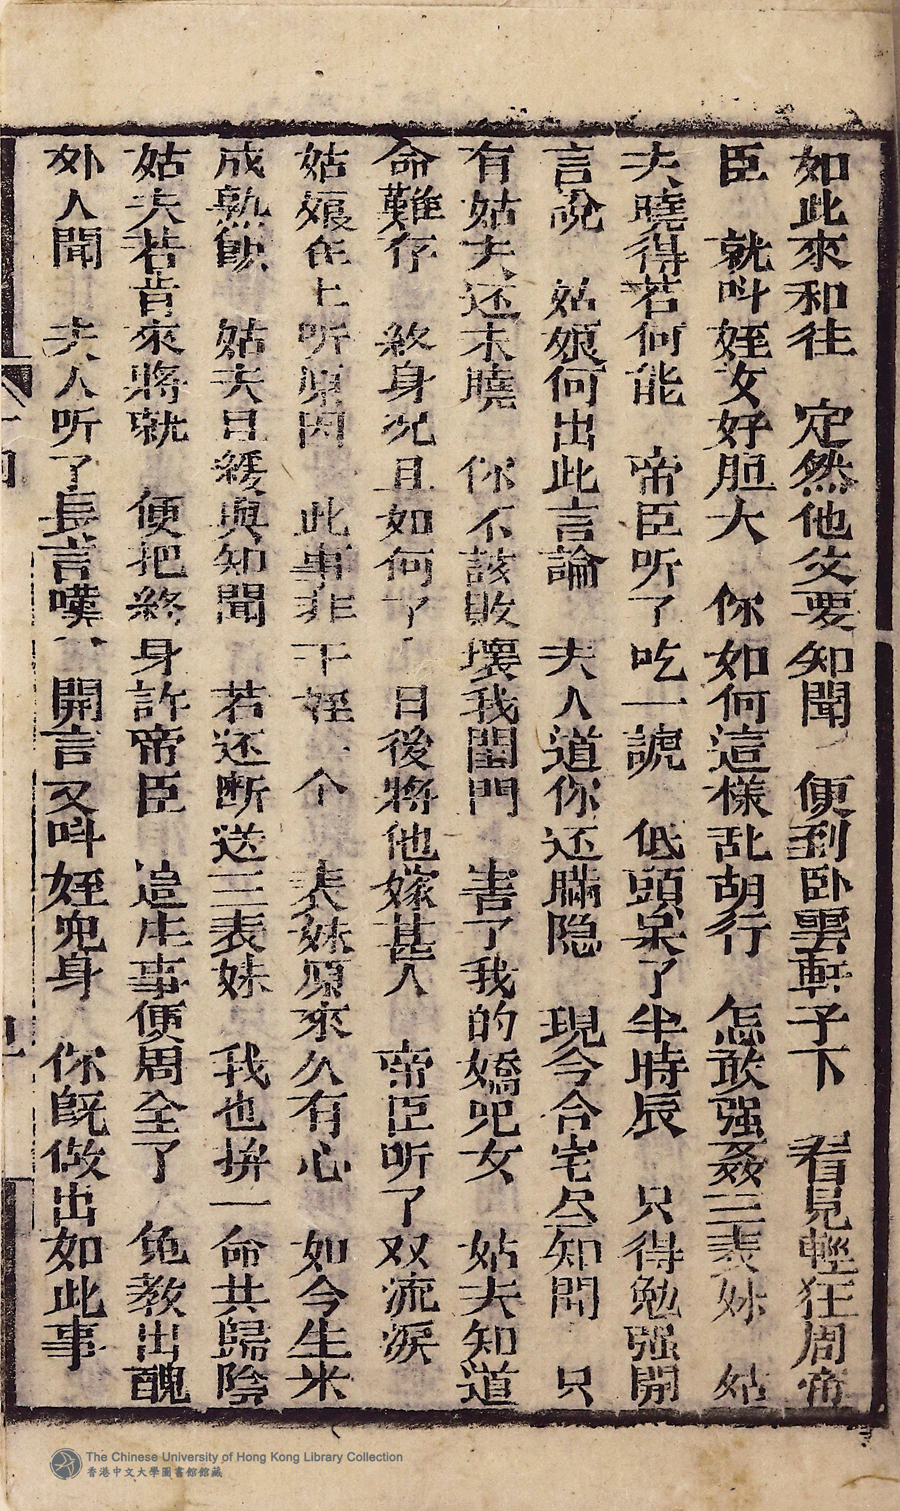 如此來和往　定然他父要知聞　便到卧雲軒子下　看見輕狂周帝
臣　就呌姪女好胆大　你如何這樣乱胡行　怎敢强姦三表妹　姑
夫曉得若何能　帝臣听了吃一諕　低頭呆了半時辰　只得勉强開
言說　姑娘何出此言論　夫人道你还瞞隐　現今合宅尽知聞　只
有姑夫还未曉　你不該敗壞我閨門　害了我的嬌兒女　姑夫知道
命難存　終身况且如何了　日後將他嫁甚人　帝臣听了双流淚
姑娘在上听原因　此事非干姪一个　表妹原來久有心　如今生米
成熟飯　姑夫且緩與知聞　若还断送三表妹　我也拚一命共歸陰
姑夫若肯來將就　便把終身許帝臣　這庄事便周全了　免教出醜
外人聞　夫人听了長言嘆　開言又呌姪兒身　你既做出如此事
The Chinese University of Hong Kong Library Collection
香港中文大學圖書館館藏